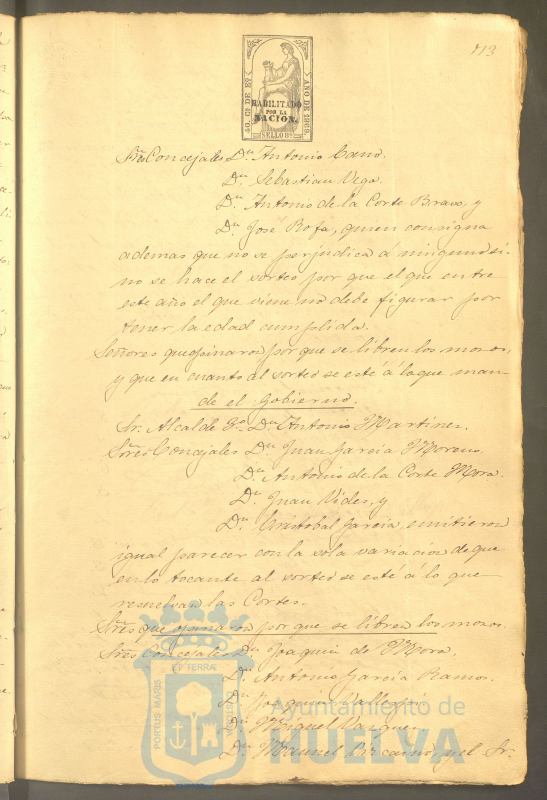 113
40 Cs DE Eº
AÑO DE 1869
HABILITADO
POR LA
NACION.
SELLO 8º
Sres Concejales Dn. Antonio Cano.
Dn. Sebastian Vega.
Dn. Antonio de la Corte Bravo, y
Dn. José Rofa, quien consigna
ademas que no se perjudica á ninguno si
no se hace el sorteo por que el que entre
este año el que viene no debe figurar por
tener la edad cumplida.
Señores que opinaron por que se libren los mozos,
y que en cuanto al sorteo se esté á lo que man-
de el Gobierno.
Sr. Alcalde Dn Antonio Martinez.
Sores Concejales Dn Juan Garcia Moreno.
Dn. Antonio de la Corte Mora.
Dn Juan Vides, y
Dn. Cristobal Garcia, emitieron
igual parecer con la sola variacion de que
en lo tocante al sorteo se esté á lo que
resuelvan las Cortes.
Sres que opinaron por que se libren los mozos.
Sres Concejales Dn Joaquin de Mora.
Dn. Antonio Garcia Ramos.
Dn. Joaquin
Dn. Miguel Vazquez
Dn. Manuel y el Sr.
PORTUS MARIS
ET TERRÆ
CUSTODIA
Ayuntamiento de
HUELVA